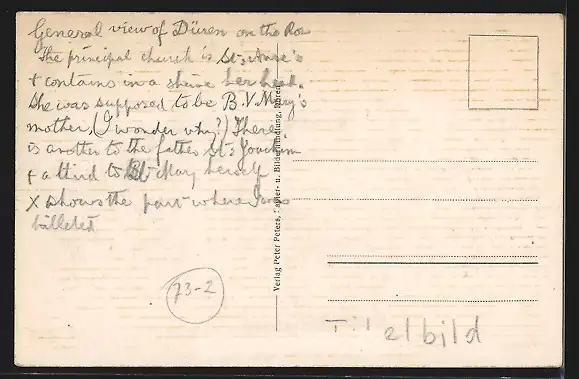 General view of Düren on the Roe
The principal church is St. Anne's
+ contains in a shrine her head.
She was supposed to be B.V. Mary's
mother, (I wonder why?) There
is another to the father St. Joachim
+ a third to St. Mary herself
X shows the part where I was
billeted
73-2
Verlag Peter Peters, Papier- u. Bilderhandlung, Düren
Titelbild